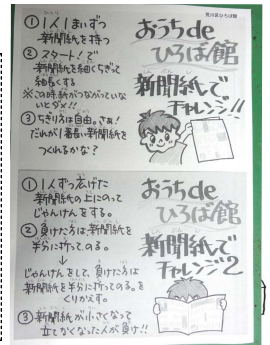 荒川区ひろば館
おうちde
ひろば館
新聞紙で
チャレンジ!!
① 1人1まいずつ
新聞紙を持つ
② スタート!で
新聞紙を細くちぎって
細長くする
※この時紙がつながっていな
いとダメ!!
③ ちぎり方は自由。さぁ!
だれが1番長い新聞紙を
つくれるかな?
おうちde
ひろば館
新聞紙で
チャレンジ2
① 1人ずつ広げた
新聞紙の上にのって
じゃんけんをする。
② 負けた方は新聞紙を
半分に折ってのる。
↓
じゃんけんをして、負けた方は
新聞紙を半分に折ってのる。を
くりかえす。
③ 新聞紙が小さくなって
立てなくなった人が負け!!